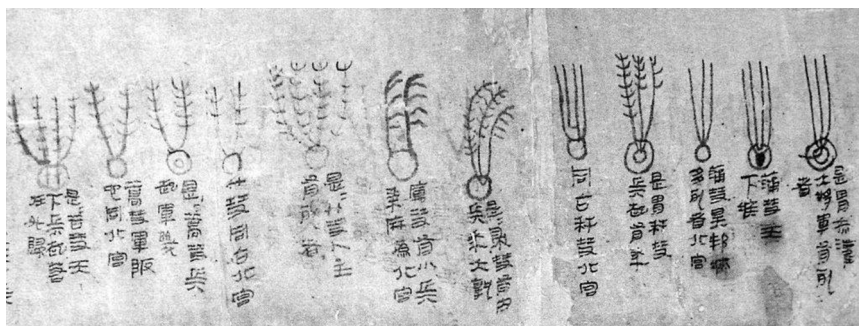 是胃赤灌
大將軍有死
者
蒲彗天
下疾
蒲彗星邦疢
多死者北宮
是胃秆彗
兵起有年
同占秆彗北宮
是是帚彗有内
兵年大孰
厲彗有小兵
黍麻為北宮
是是竹彗人主
有死者
竹彗同占北宮
是是蒿彗兵
起軍幾
蒿彗軍阪
它同北宮
是是苫彗天
下兵起若
在外歸